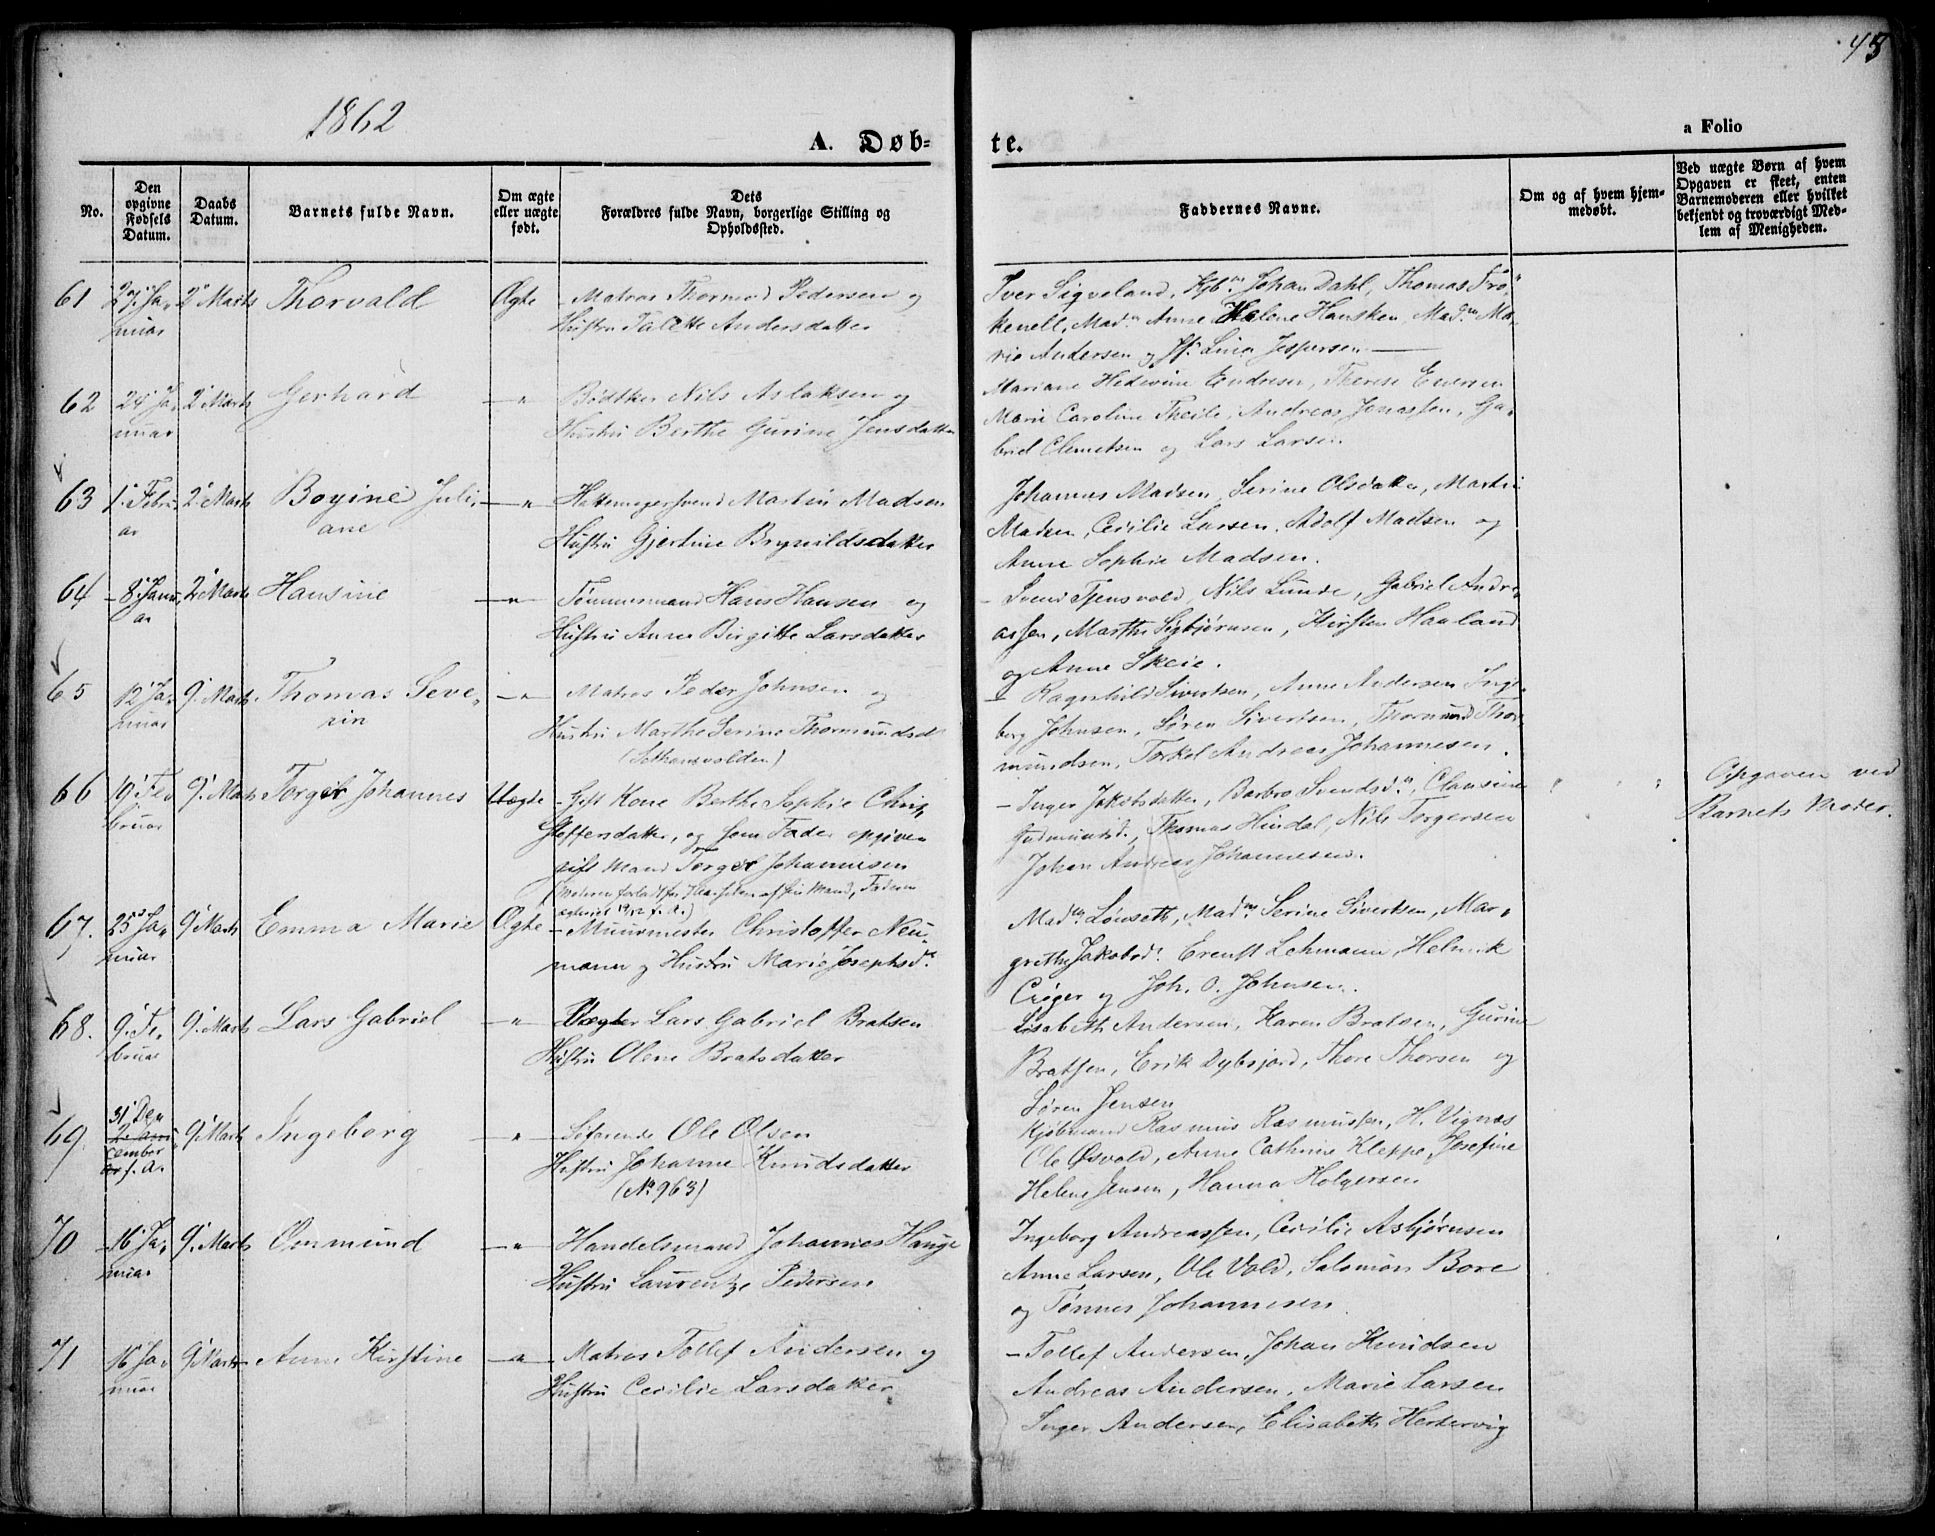 45
1862
a Folio
A. Døb-
te.
No.
Den opgivne Fødsels Datum.
Daabs Datum.
Barnets fulde Navn.
Om ægte eller uægte født.
Dets Forældres fulde Navn, borgerlige Stilling og Opholdssted.
Faddernes Navne.
Om og af hvem hjemmedøbt.
Ved uægte Børn af hvem Opgaven er skeet, enten Barnemoderen eller hvilket bekjendt og troværdigt Medlem af Menigheden.
61 Ja- 2' Marts Thorvald Ægte - Matros Thormod Pedersen og
nuar Hustru Talette Andersdatter
Iver Sigveland, Johan Dahl, Thomas Frø-
kenell, Madm Anne Helene Hansken, Madm Ma-
rie Andersen og Lina Jespersen
62 24' Ja- 2' Marts Gerhard -"- Bødtker Nils Aslaksen og
nuar Hustru Berthe Gurine Jensdatter
Mariane Hedevine Endresen, Therese Enersen
Marie Caroline Theile, Andreas Jonassen, Ga-
briel Clemetsen og Lars Larsen
63 1' Febru- 2' Marts Boyine Juli- -"- Hattemagersvend Martin Madsen
ar ane Hustru Gjertine Brynildsdatter
Johannes Madsen, Serine Olsdatter, Martin
Madsen, Cecilie Larsen, Adolf Madsen og
Anne Sophie Madsen.
64 8' Janu- 2' Marts Hansine -"- Tømmermand Hans Hansen og
ar Hustru Anne Birgitte Larsdatter
- Svend Tjensvold, Nils Lunde, Gabriel Andre-
assen, Marthe Sigbjørnsen, Kirsten Haaland
og Anne Skeie.
65 12' Ja- 9' Marts Thomas Seve- -"- Matros Peder Johnsen og
nuar rin Hustru Marthe Serine Thormundsd
- Ragnhild Sivertsen, Anne Andersen, Inge-
borg Johnsen, Søren Sivertsen, Thormund Thor-
mundsen, Torkel Andreas Johannesen.
66 19' Fe- 9' Marts Torger Johannes Uægte - Gift Kone Berthe Sophie Chri-
bruar stoffersdatter, og som Fader opgiven
gift Mand Torger Johannesen
- Inger Jakobsdatter, Barbro Svendsdr, Clausine
Gudmundsd., Thomas Hindal, Nils Torgersen
Johan Andreas Johannesen.
Opgaven ved
Barnets Moder.
67. 25' Ja- 9' Marts Emma Marie Ægte - Muurmester Christoffer Neu-
nuar mann og Hustru Marie Josephsd.
Madm Lønseth, Madm Serine Sivertsen, Mar-
grethe Jakobsd. Ernst Lehmann, Helmik
Crøger og Joh. O. Johnsen.
68. 9' Fe- 9' Marts Lars Gabriel -"- Vægter Lars Gabriel Bratsen
bruar Hustru Olene Bratsdatter
- Lisabeth Andersen, Karen Bratsen, Gurine
Bratsen, Erik Dybsjord, Thore Thorsen og
Søren Jensen
69. 31' De- 9' Marts Ingeborg -"- Søfarende Ole Olsen
cember f. A. Hustru Johanne Knudsdatter
(No 963)
Kjøbmand Rasmus Rasmussen, H. Vignæs
Ole Øsvold, Anne Cathrine Kleppe, Josefine
Helene Jensen, Hanna Holgersen
70 16' Ja- 9' Marts Ommund -"- Handelsmand Johannes Hauge
nuar Hustru Laurentze Pedersen
Ingeborg Andreassen, Cecilie Asbjørnsen
Anne Larsen, Ole Vold, Salomon Bore
og Tønnes Johannesen.
71 16' Ja- 9' Marts Anne Kirstine -"- Matros Tollef Andersen og
nuar Hustru Cecilie Larsdatter
- Tollef Andersen, Johan Knudsen
Andreas Andersen, Marie Larsen
Inger Andersen, Elisabeth Hertervig